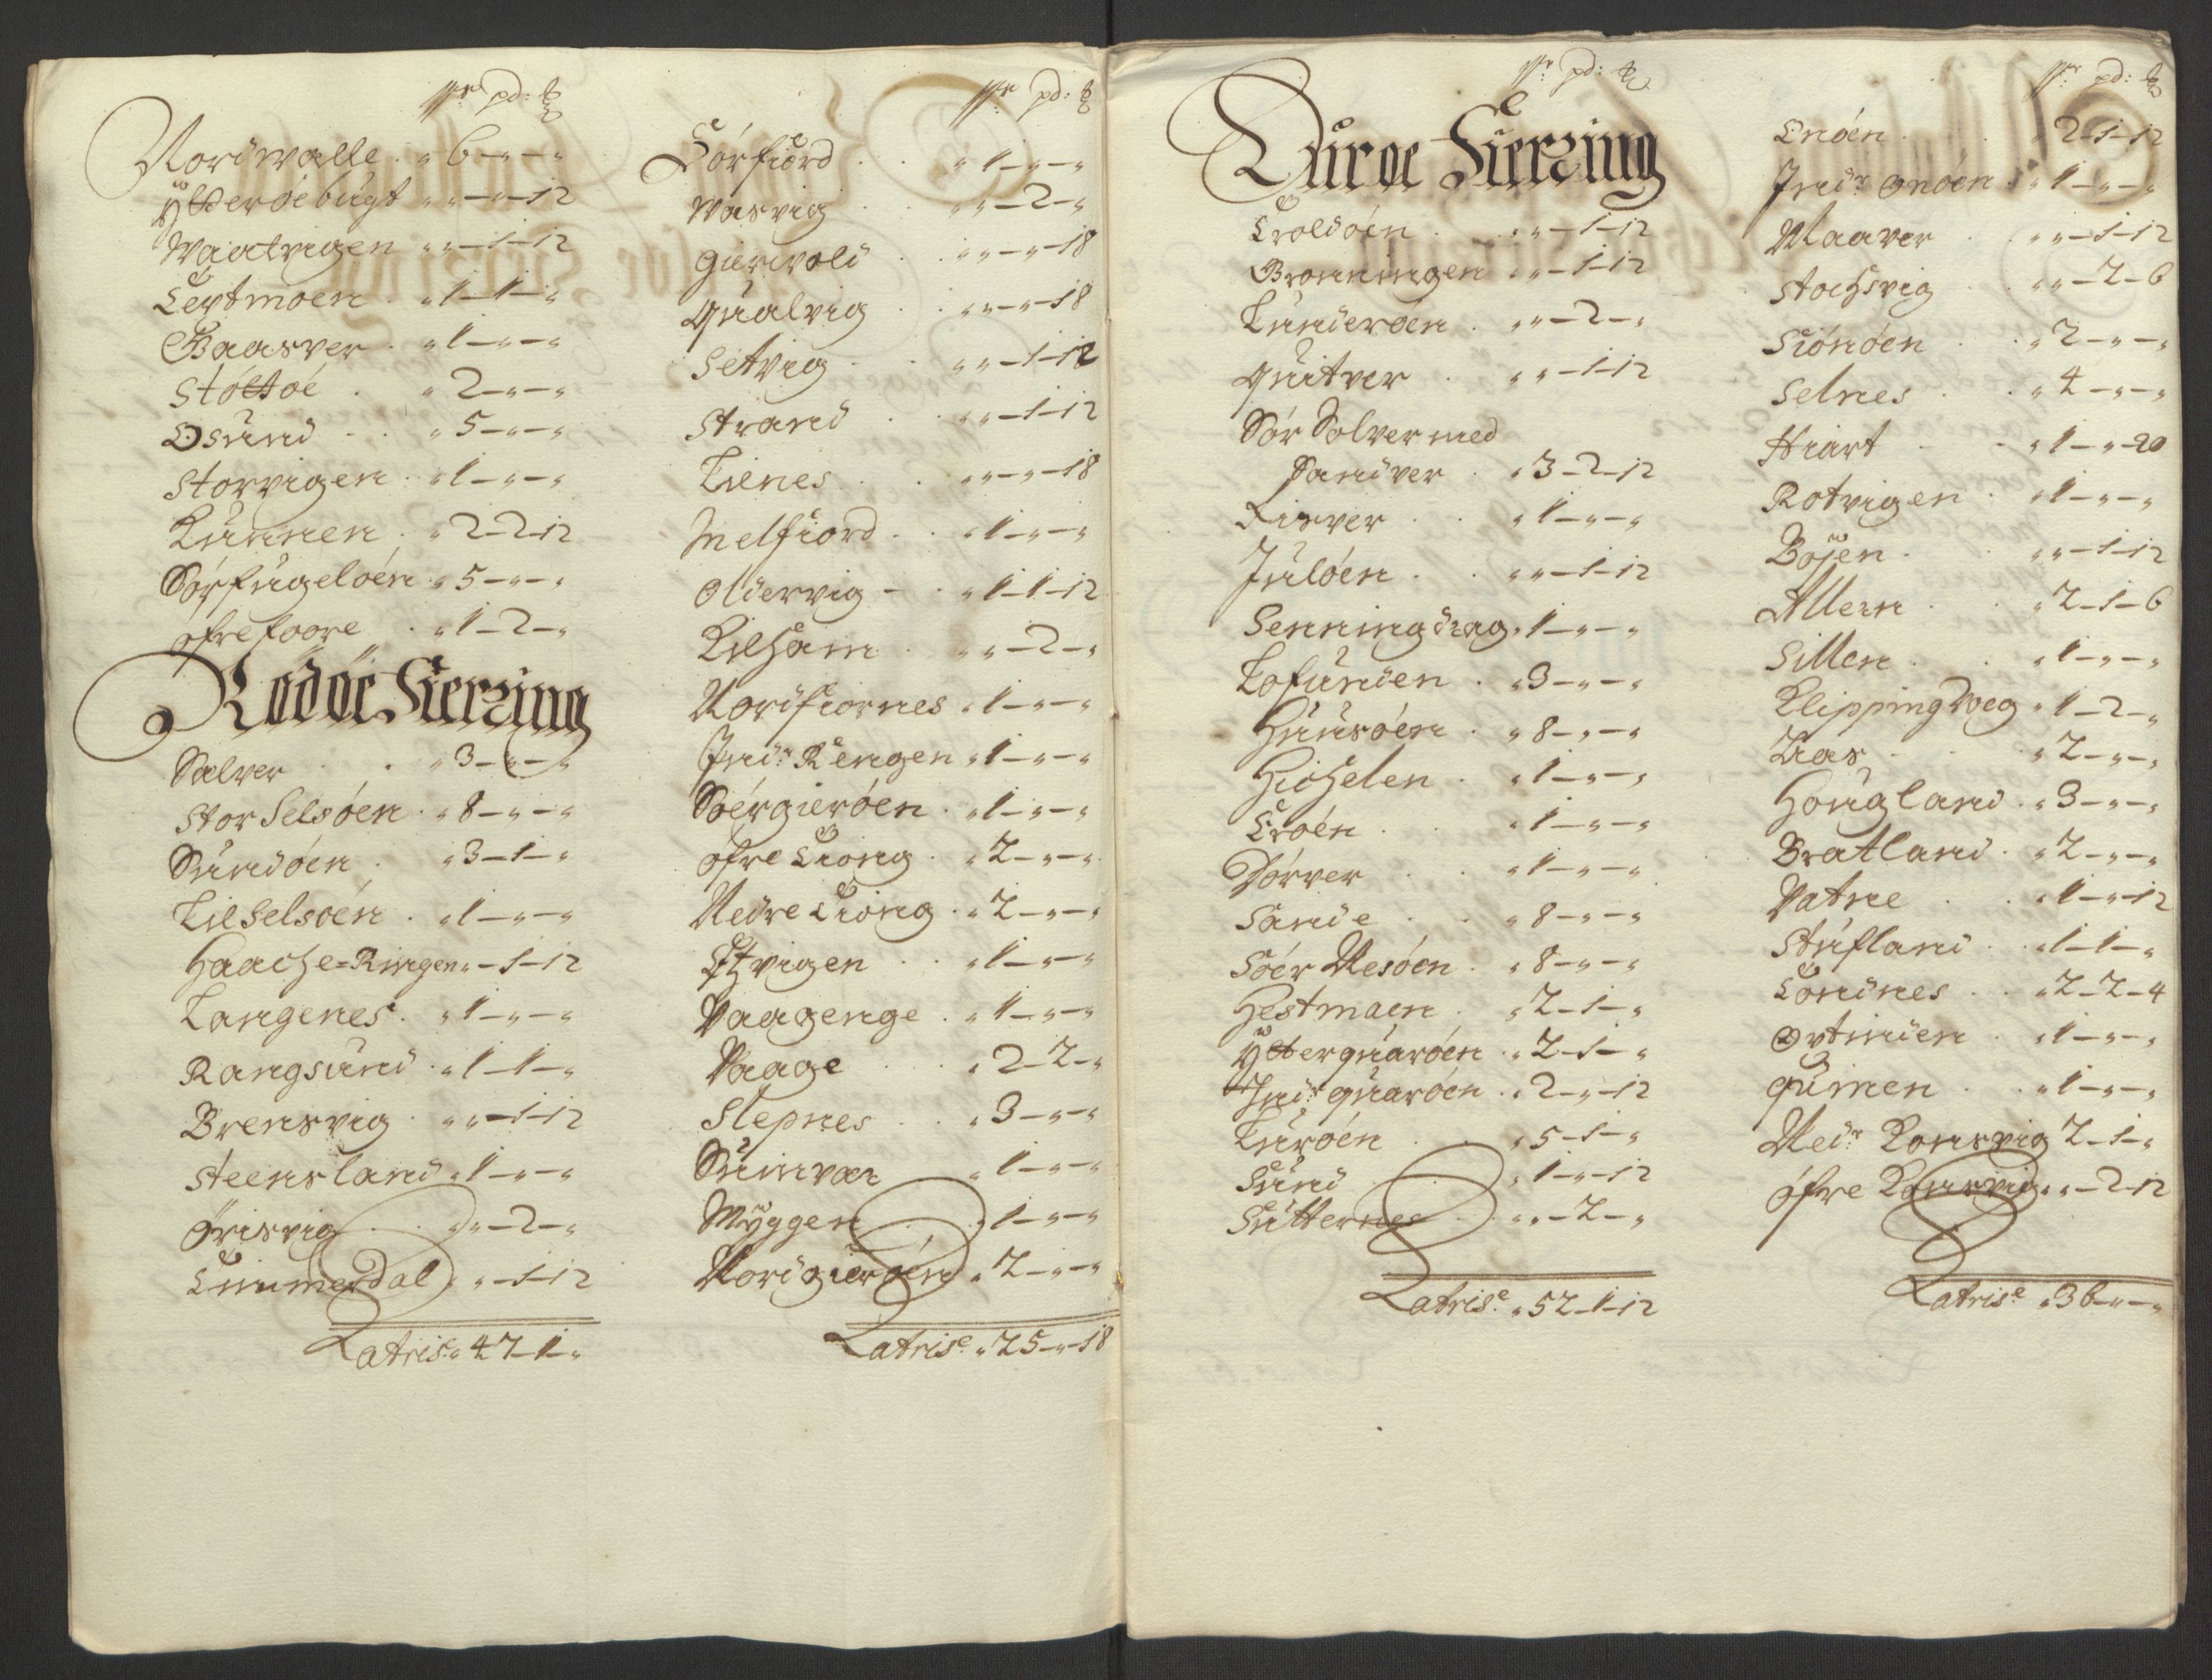 pd:
Nordwalle „ 6 – „ – „
Ytteröebugt „ „ – „ – 12
Waatvigen „ „ – 1 – 12
Tertmoen „ 1 – 1 – „
Gaasver „ 1 – „ – „
Støttoe „ 2 – „ – „
Osund „ 5 – „ – „
Storvigen „ 1 – „ – „
Kunnen „ 2 – 2 – 12
Sørfugeløen „ 5 – „ – „
øfrefoore „ 1 – 2 – „
Rödöe Fierzing
Sølver „ 3 – „ – „
Stor Selsøen „ 8 – „ – „
Sundøen „ 3 – 1 – „
Lilselsøen „ 1 – „ – „
Haache=Ringen „ – 1 – 12
Langenes „ 1 – „ – „
Rangsund „ 1 – 1 – „
Brensvig „ „ – 1 – 12
Steensland „ 1 – „ – „
Ørisvig „ „ – 2 – „
Limmerdal „ „ – 1 – 12
Latris: „ 47 – 1 – „
pd:
Sørfiord „ 1 – „ – „
Wasvig „ „ – 2 – „
Gierwold „ „ – „ – 18
Qualvig „ „ – „ – 18
Setvig „ „ – 1 – 12
Strand „ „ – 1 – 12
Lienes „ „ – „ – 18
Melfiord „ 1 – „ – „
Oldervig „ 1 – 1 – 12
Kilham „ „ – 2 – „
Nordfiornes „ 1 – „ – „
Indr Rengen „ 1 – „ – „
Søergierøen „ 1 – „ – „
øfre Tiong „ 2 – „ – „
Nedre Tiong „ 2 – „ – „
vigen „ 1 – „ – „
Vaagenge „ 1 – „ – „
Vaage „ 2 – 2 – „
Slepnes „ 3 – „ – „
Suinvær „ 1 – „ – „
Myggen „ 1 – „ – „
Nordgierøen „ 2 – „ – „
Latris: „ 25 – „ – 18
pd:
Luröe Fierzing
Troldøen „ „ – 1 – 12
Bronningen „ „ – 1 – 12
Lunderøen „ „ – 2 – „
Quitver „ „ – 1 – 12
Sør Solver med
Sandver „ 3 – 2 – 12
Lisver „ 1 – „ – „
Juløen „ „ – 1 – 12
Senningdrag „ 1 – „ – „
Lofunden „ 3 – „ – „
Huusøen „ 8 – „ – „
Gichelen „ 1 – „ – „
Troen „ 1 – „ – „
Dørver „ 1 – „ – „
Sande „ 8 – „ – „
Søer Nesøen „ 8 – „ – „
Hestmaen „ 2 – 1 – „
Ytterquarøen „ 2 – 1 – „
Indr quarøen „ 2 – „ – 12
Lurøen „ 5 – 1 – „
Lund „ 1 – „ – 12
Sutternes „ „ – 2 – „
Latris: „ 52 – 1 – 12
pd:
Onøen „ 2 – 1 – 12
Indr onøen „ 1 – „ – „
Maaver „ „ – 1 – 12
Stochsvig „ „ – 2 – 6
Siønøen „ 2 – „ – „
Selnes „ 4 – „ – „
Hiart „ 1 – „ – 20
Rotvigen „ 1 – „ – „
Bøjen „ „ – 1 – 12
Alleren „ 2 – 1 – 6
Sillen „ 1 – „ – „
Klippingweg „ 1 – 2 – „
Aas „ 2 – „ – „
Hougland „ 3 – „ – „
Bratland „ 2 – „ – „
Vatne „ 1 – „ – 12
Stufland „ 1 – 1 – „
Tøndnes „ 2 – 2 – 4
Ortinden „ 1 – „ – „
Quinen „ 1 – „ – „
Nedr Konsvig 2 – 1 – „
øfre Konsvig „ „ – 2 – 12
Latris: „ 36 – „ – „